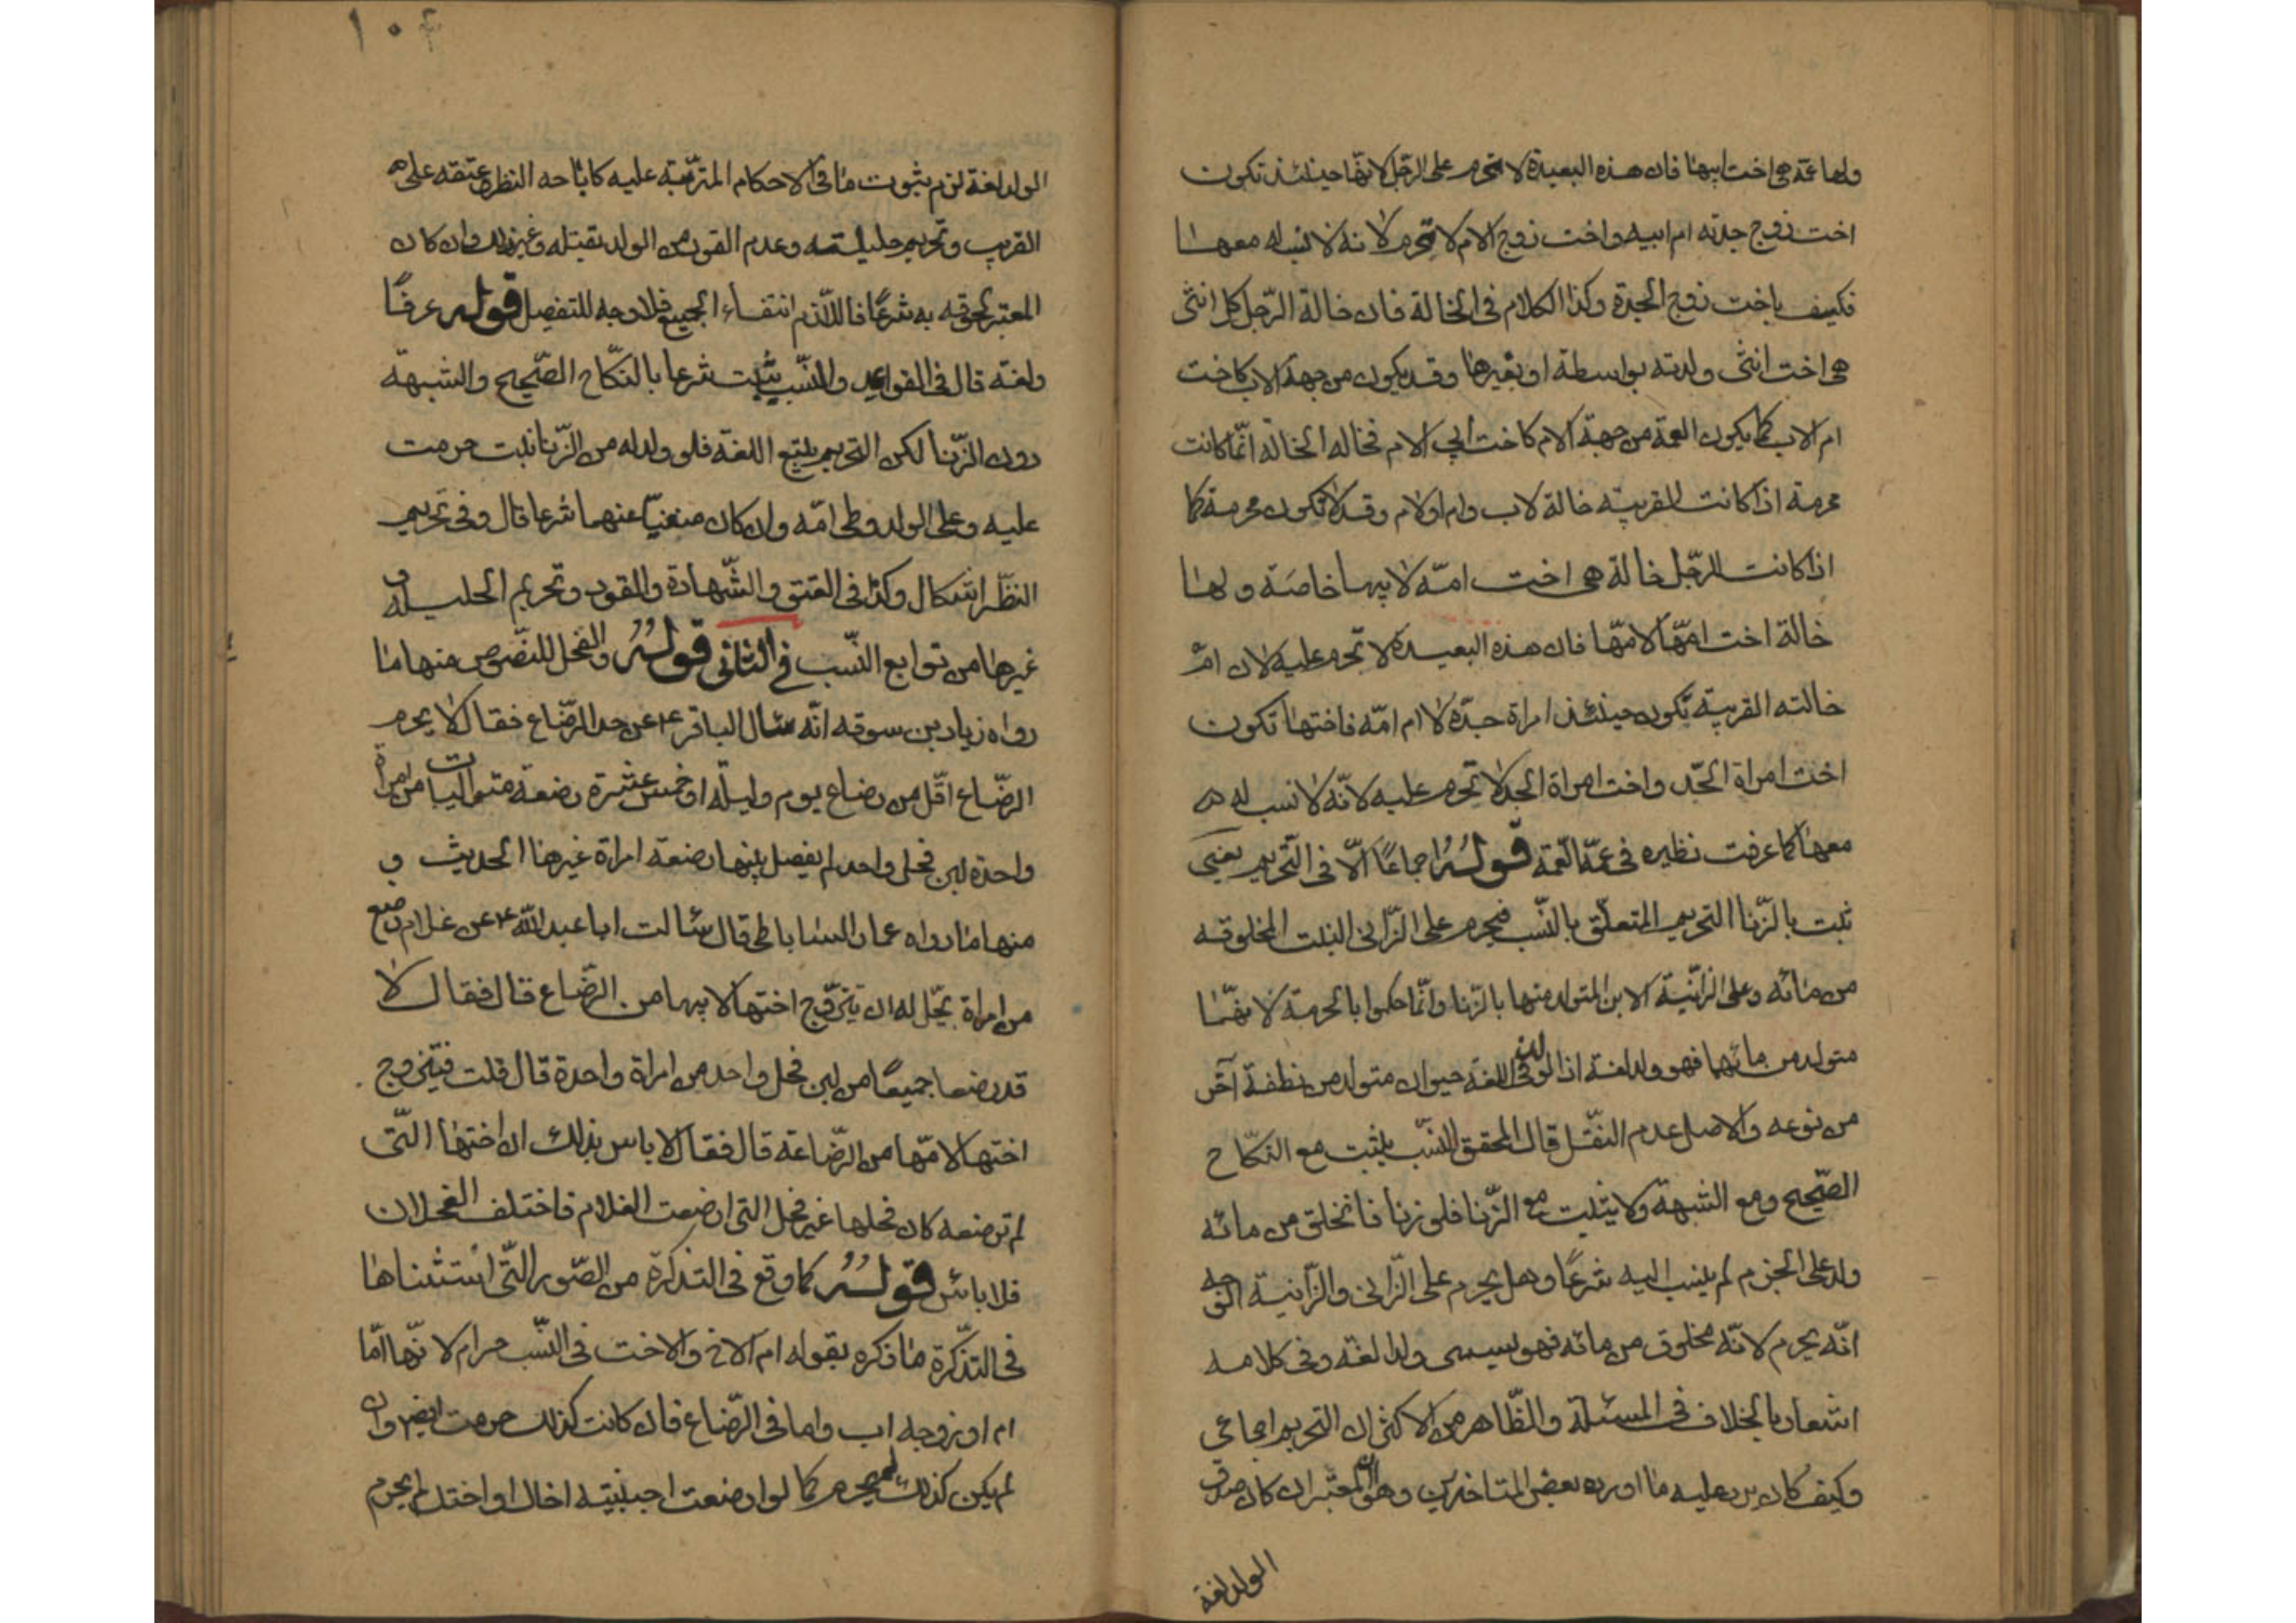 ولها عمة هى اخت ابيها فان هذه البعيدة لا تحرم على الرّجل لانّها حينئذ تكون
اخت زوج جدته ام ابيه واخت زوج الام لا تحرم لانه لا نسب له معها
فكيف باخت زوج الجدة وكذا الكلام فى الخالة فان خالة الرّجل كل انثى
هى اخت انثى ولدته بواسطة او بغيرها وقد يكون من جهة الاب كاخت
ام الاب كما يكون العمة من جهة الام كاخت ابى الام فخاله الخالة انّما كانت
محرمة اذا كانت القريبه خالة لاب وام او لام وقد لا تكون محرمة كما
اذا كانت للرّجل خالة هى اخت امّه لابيها خاصة ولها
خالة اخت امّها لامّها فان هذه البعيدة لا تحرم عليه لان امّ
خالته القريبة تكون حينئذ امراة جدّه لا ام امّه فاختها تكون
اخت امراة الجّد واخت امراة الجد لا تحرم عليه لانّه لا نسب له
معها كما عرفت نظيره فى عمّة العّمة قولُهُ اجماعًا الّا فى التّحريم يعنى
ثبت بالزّنا التحريم المتعلّق بالنّسب فيحرم على الزّانى البنت المخلوقه
من مائه وعلى الزانّية الابن المتولد منها بالزّنا وانّما حكموا بالحرمة لانهّما
متولد من مائهما فهو ولد لغة اذ الولد فى اللغة حيوان متولد من نطفة آخر
من نوعه والاصل عدم النقّل قال المحقق النّسب يثبت مع النكّاح
الصّحيح ومع الشبهة ولا يثبت مع الزّنا فلو زنا فانخلق من مائه
ولد على الجزم لم ينسب اليه شرعًا وهل يحرم على الزّانى والزّانية الوجه
انّه يحرم لانّه مخلوق من مائه فهو يسمى ولدا لغة وفى كلامه
اشعار بالخلاف فى المسئلة والظّاهر من الاكثر ان التحريم اجماعى
وكيف كان يرد عليه ما اورده بعض المتاخرين وهو انّ المعتبر ان كان صدق
الولد لغة
١٠٤
الولد لغة لزم ثبوت ما فى الاحكام المترّتبة عليه كاباحه النظر وعتقه على
القريب وتحريم حليلته وعدم القود من الولد بقتله وغير ذلك وان كان
المعتبر لحوقه به شرعًا فاللّازم انتفاء الجميع فلا وجه للتفصيل قوله عرفًا
ولغة قال فى القواعد والنّسب يثبت شرعا بالنكّاح الصّحيح والشبهة
دون الزّنا لكن التحريم يتبع اللغة فلو ولد له من الزّنا بنت حرمت
عليه وعلى الولد وطى امّه وان كان منفيّا عنهما شرعا قال وفى تحريم
النظّر اشكال وكذا فى العتق والشّهادة والقود وتحريم الحليلة و
غيرها من توابع النّسب فى الثانى قولُهُ والفحل للنصّوص منها ما
رواه زياد بن سوقه انّه سئال الباقر ع عن حد الرضّاع فقال لا يحرم
الرضّاع اقّل من رضاع يوم وليلة او خمس عشرة رضعة متواليات من امراة
واحدة لبن فحل واحد لم يفصل بينها رضعة امراة غيرها الحديث و
منها ما رواه عمار الساباطى قال سئالت ابا عبد اللّه ع عن غلام رضع
من امراة يحّل له ان يتزّوج اختها لابيها من الرضّاع قال فقال لا
قد رضعا جميعًا من لبن فحل واحد من امراة واحدة قال قلت فيتزوج
اختها لامّها من الرّضاعة قال فقال لا باس بذلك ان اختها التّى
لم ترضعه كان فحلها غير فحل التى ارضعت الغلام فاختلف الفحلان
فلا باس قولُهُ كما وقع فى التذكرة من الصّور التّى استثناها
فى التذّكرة ما ذكره بقوله ام الاخ والاخت فى النّسب حرام لانّها امّا
ام او زوجه اب واما فى الرّضاع فان كانت كذلك حرمت ايضا وان
لم يكن كذلك لم يحرم كما لو ارضعت اجنبيّه اخاك او اختك لم يحرم